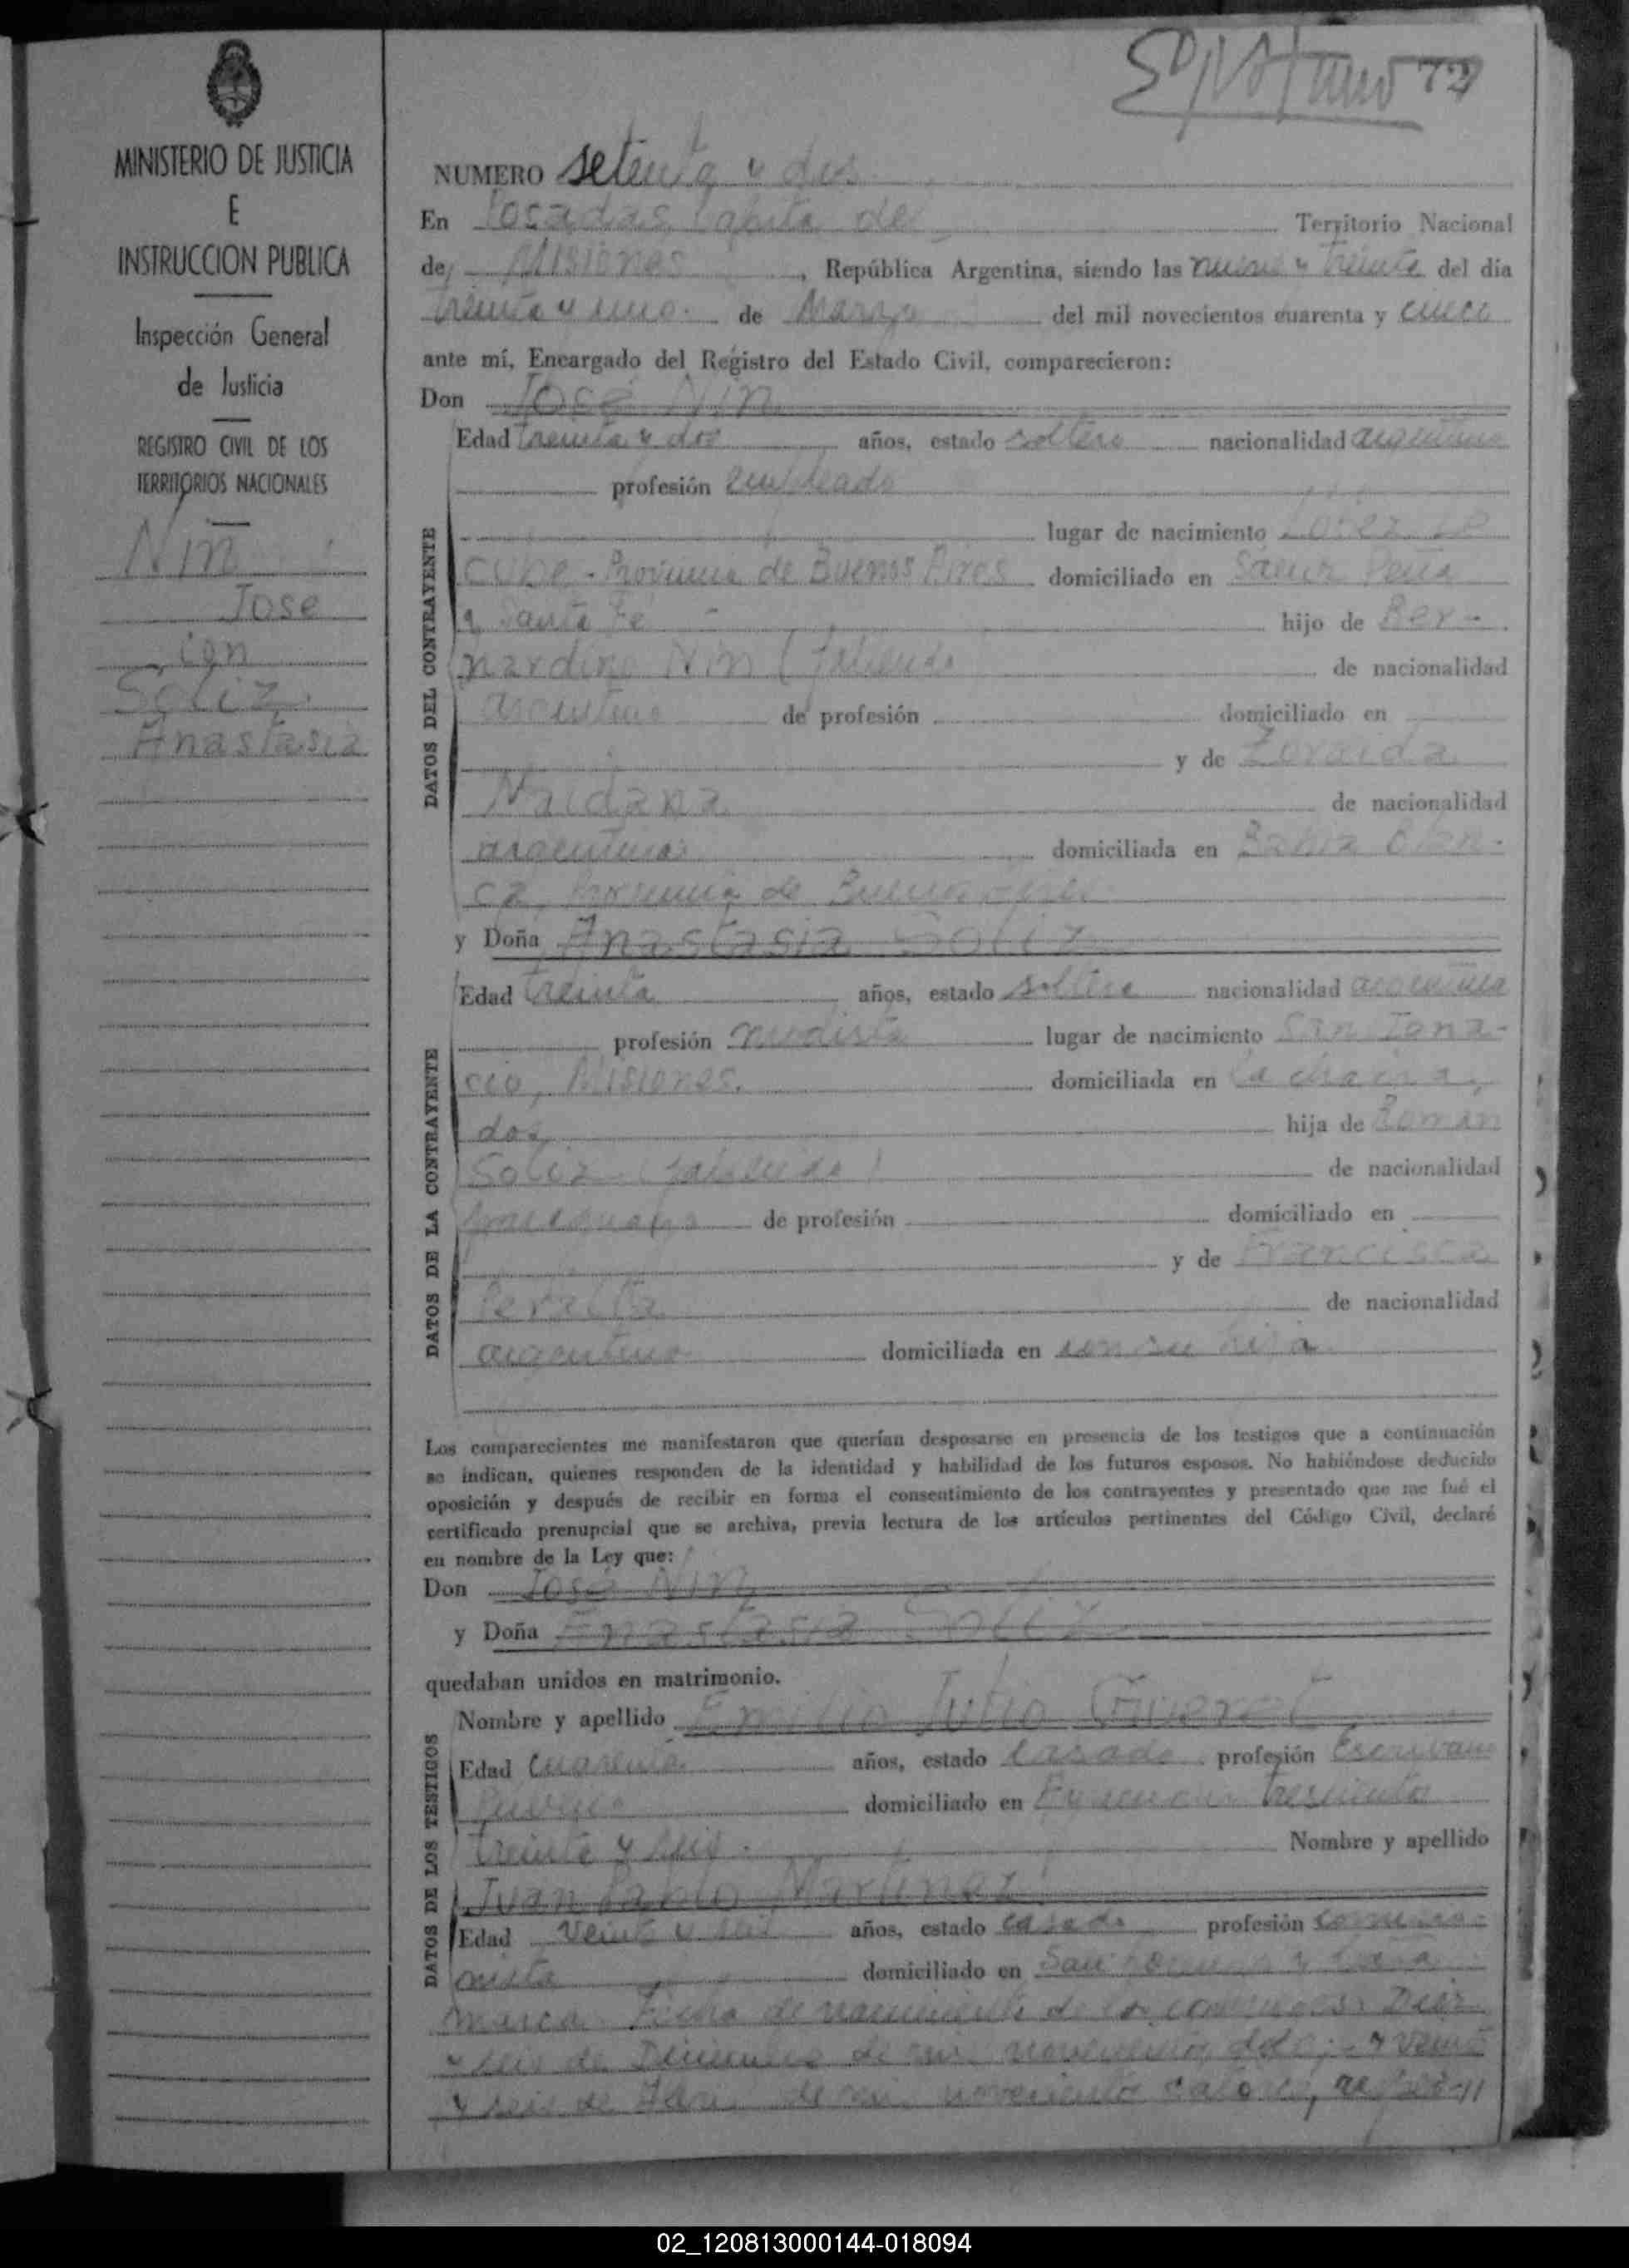 MINISTERIO DE JUSTICIA
E
INSTRUCCION PUBLICA
Inspección General
de Justicia
REGISTRO CIVIL DE LOS
TERRITORIOS NACIONALES
Nin
Jose
con
Soliz
Anastasia
72
NUMERO setenta y dos
En Posadas Capital del Territorio Nacional
de Misiones, República Argentina, siendo las nueve y treinta del día
treinta y uno de Marzo del mil novecientos cuarenta y cinco
ante mí, Encargado del Registro del Estado Civil, comparecieron:
Don José Nin
DATOS DEL CONTRAYENTE
Edad treinta y dos años, estado soltero nacionalidad argentino
profesión empleado
lugar de nacimiento López Le
cube - Provincia de Buenos Aires domiciliado en Saenz Peña
y Santa Fé - hijo de Ber-
nardino Nin (fallecido de nacionalidad
argentino de profesión domiciliado en
y de Zoraida
Maidana de nacionalidad
argentina domiciliada en Bahia Blan-
ca, Provincia de Buenos Aires
y Doña Anastasia Soliz
DATOS DE LA CONTRAYENTE
Edad treinta años, estado soltera nacionalidad argentina
profesión modista lugar de nacimiento San Igna-
cio, Misiones. domiciliada en la chacra
dos, hija de Román
Soliz (fallecido) de nacionalidad
de profesión domiciliado en
y de Francisca
Peralta de nacionalidad
argentina domiciliada en con su hija
Los comparecientes me manifestaron que querían desposarse en presencia de los testigos que a continuación
se indican, quienes responden de la identidad y habilidad de los futuros esposos. No habiéndose deducido
oposición y después de recibir en forma el consentimiento de los contrayentes y presentado que me fué el
certificado prenupcial que se archiva, previa lectura de los artículos pertinentes del Código Civil, declaré
en nombre de la Ley que:
Don José Nin
y Doña Anastasia Soliz
quedaban unidos en matrimonio.
DATOS DE LOS TESTIGOS
Nombre y apellido Emilio Julio Gueret
Edad cuarenta años, estado casado profesión Escribano
Público domiciliado en trescientos
treinta y seis. Nombre y apellido
Juan Pablo Martinez
Edad veinte y seis años, estado casado profesión comisio-
nista domiciliado en San Lorenzo y Cata
marca. Fecha de nacimiento de los contrayentes: Diez
y seis de Diciembre de mil novecientos doce; y veinte
y seis de Abril de mil novecientos catorce,
02_120813000144-018094